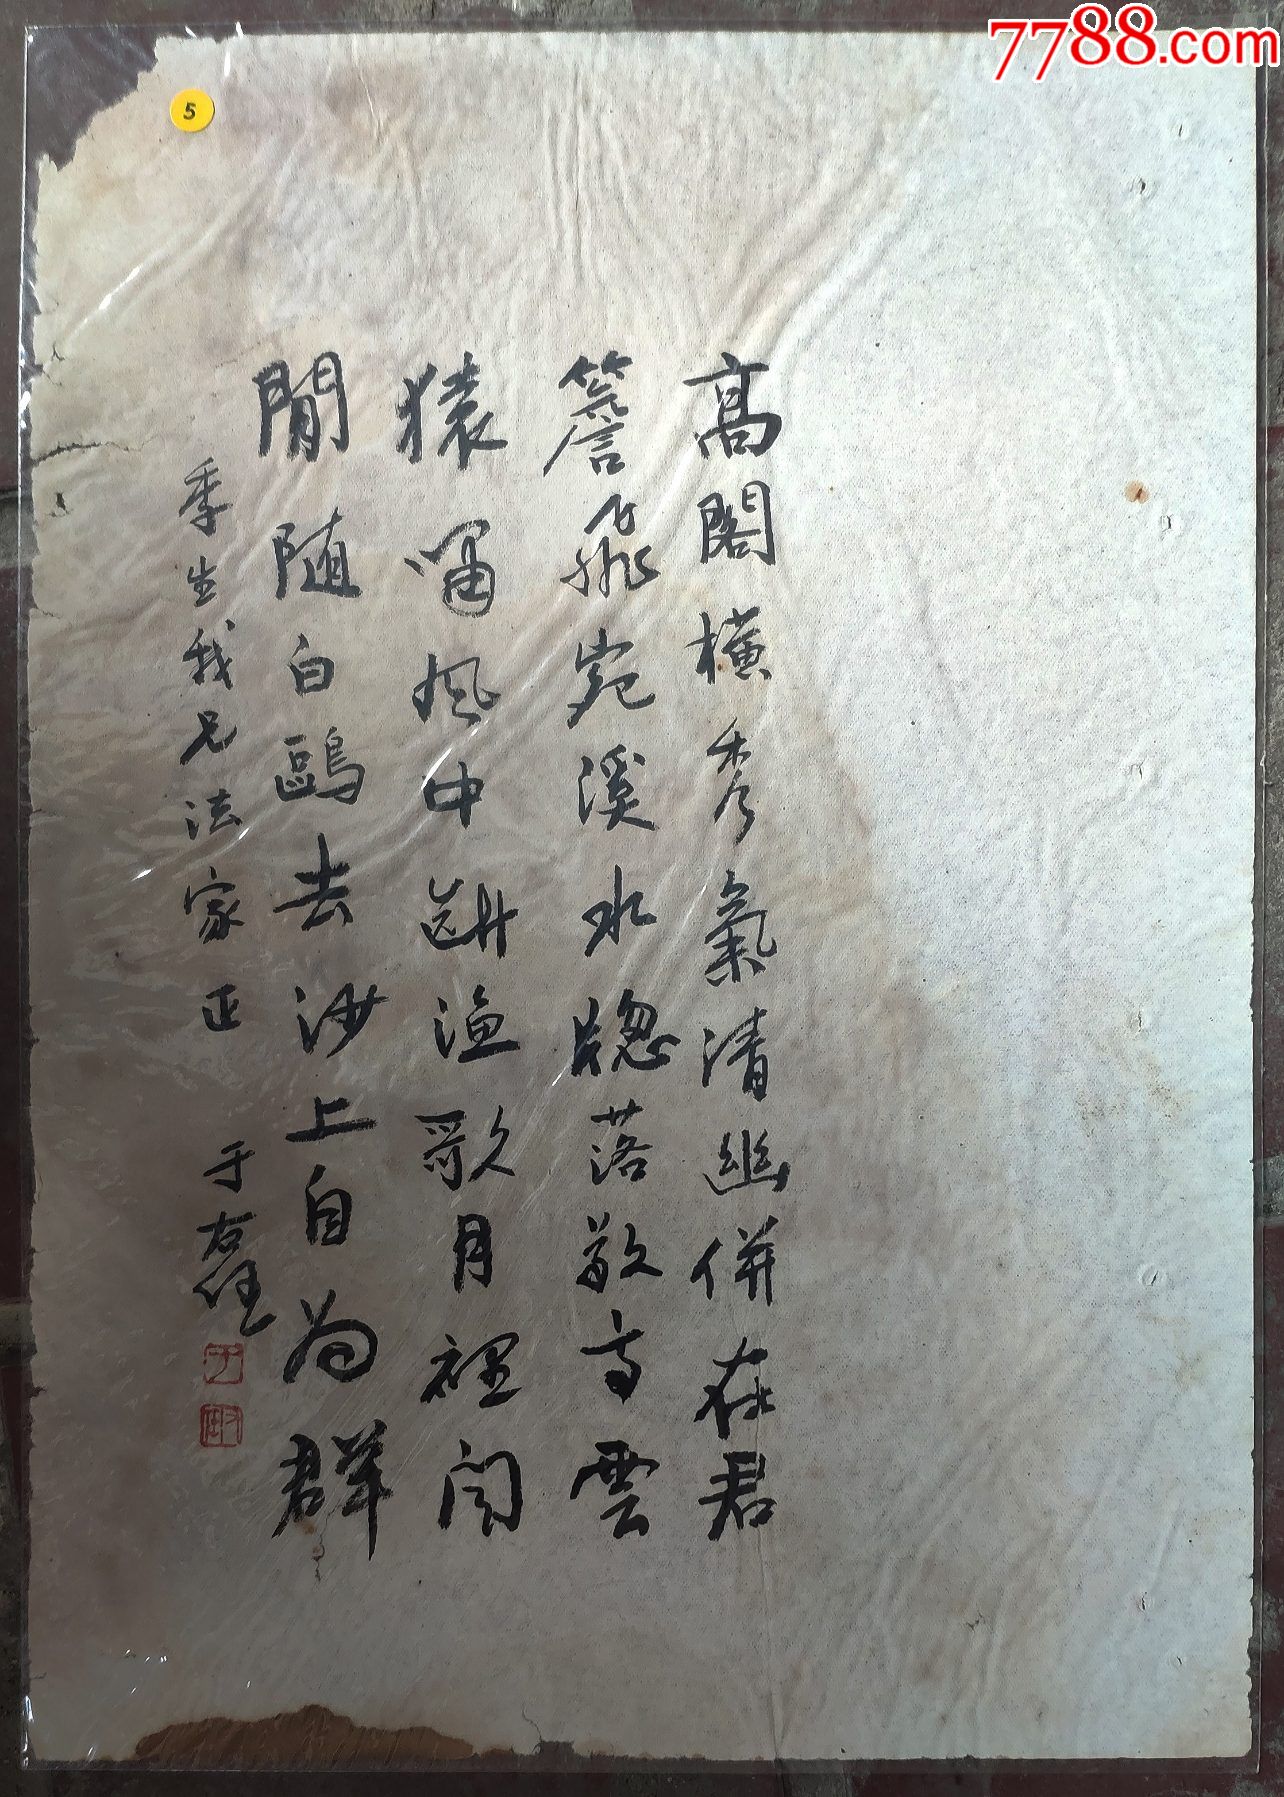 7788.com
5
高閣橫秀氣清幽併在君
簷飛宛溪水窻落敬亭雲
猿嘯風中斷漁歌月裡聞
閒隨白鷗去沙上自為群
季生我兄法家正
于右任